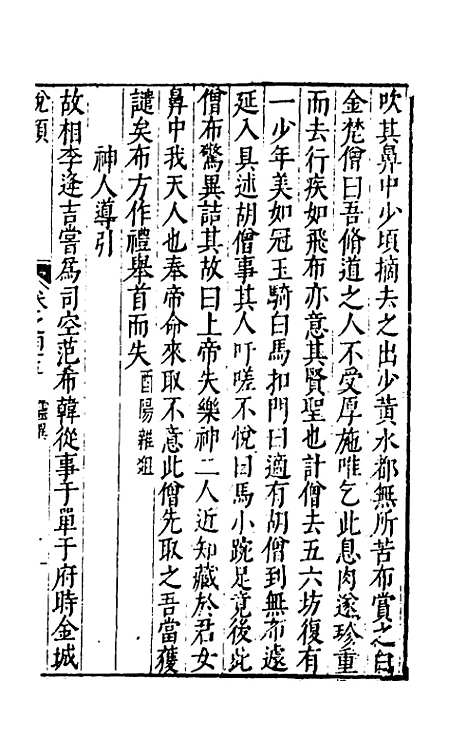 吹其鼻中少頃摘去之出少黃水都無所苦布賞之白
金梵僧曰吾脩道之人不受厚施唯乞此息肉遂珍重
而去行疾如飛布亦意其賢聖也計僧去五六坊復有
一少年美如冠玉騎白馬扣門曰適有胡僧到無布遽
延入具述胡僧事其人吁嗟不悅曰馬小踠足竟後此
僧布驚異詰其故曰上帝失樂神二人近知藏於君女
鼻中我天人也奉帝命來取不意此僧先取之吾當獲
譴矣布方作禮舉首而失 酉陽雜俎
神人導引
故相李逢吉嘗為司空范希韓從事于單于府時金城
說頤